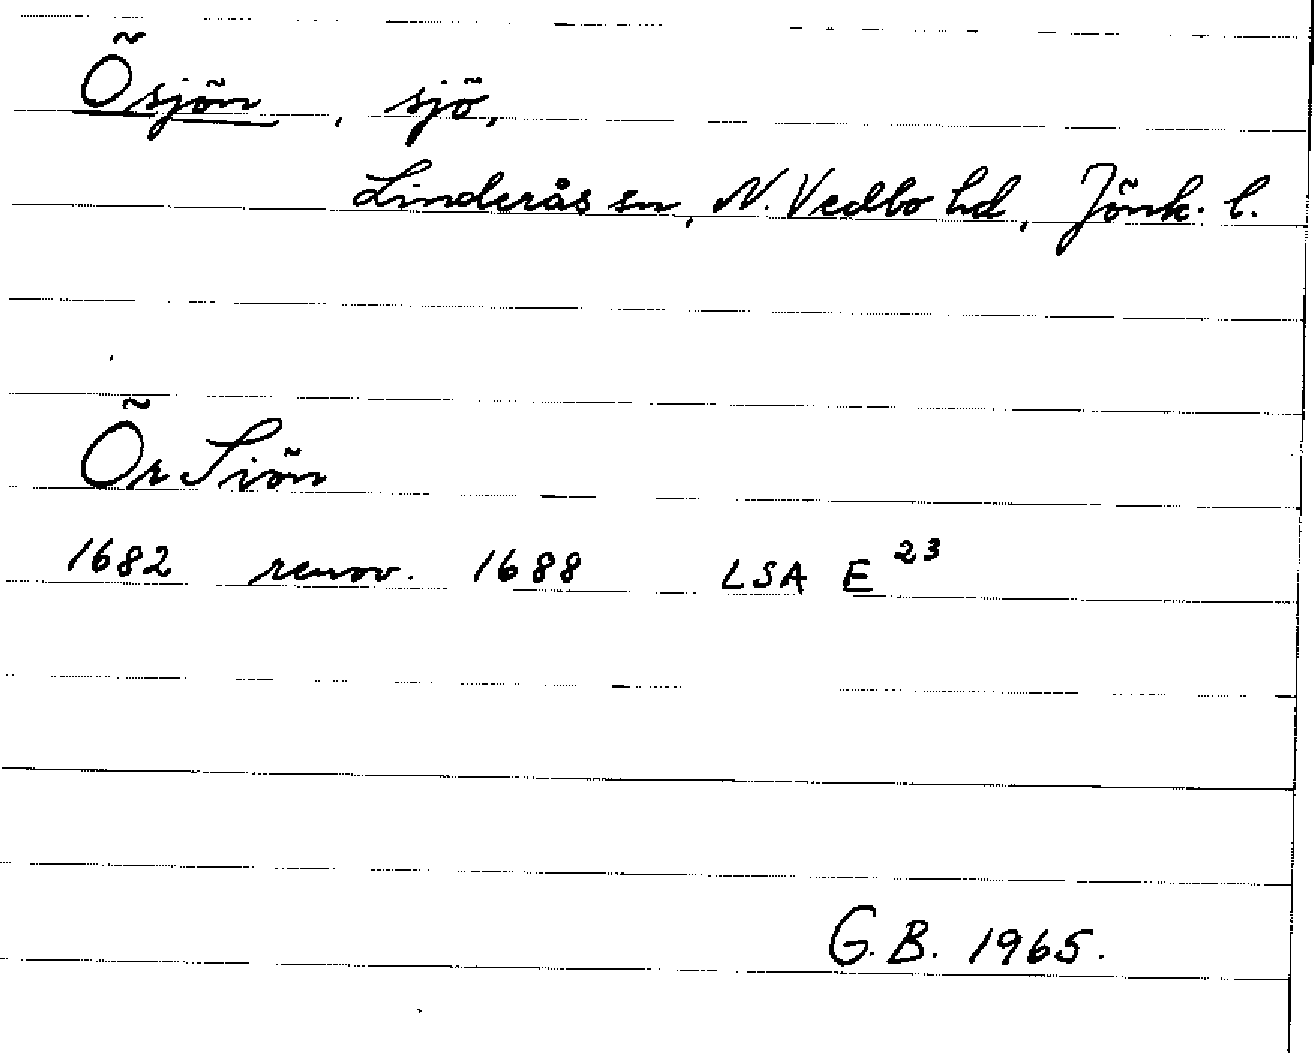 Ösjön, sjö,
Linderås sn, N. Vedbo hd, Jönk. l.
Ör Siön
1682 renov. 1688 LSA E 23
G.B. 1965.